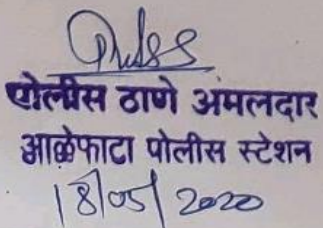 पोलीस ठाणे अंमलदार
आळेफाटा पोलीस स्टेशन
18/05/2020